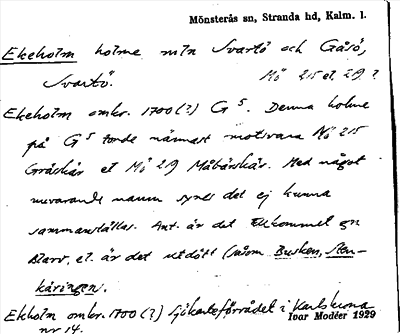 Mönsterås sn, Stranda hd, Kalm. l.
Ekeholm holme mln Svartö och Gåsö,
Svartö. Nö 215 el. 219 ?
Ekeholm omkr. 1700(?) G⁵. Denna holme
på G⁵ torde närmast motsvara Nö 215
Gråskär el Nö 219 Måbärskär. Med något
nuvarande namn synes det ej kunna
sammanställas. Ant. är det tillkommet gn
el. är det utdött (såsom Busken, Sten-
käringen.
Ekholm omkr. 1700(?) Sjökarteförrådet i Karlskrona
nr 14.
Ivar Modéer 1929